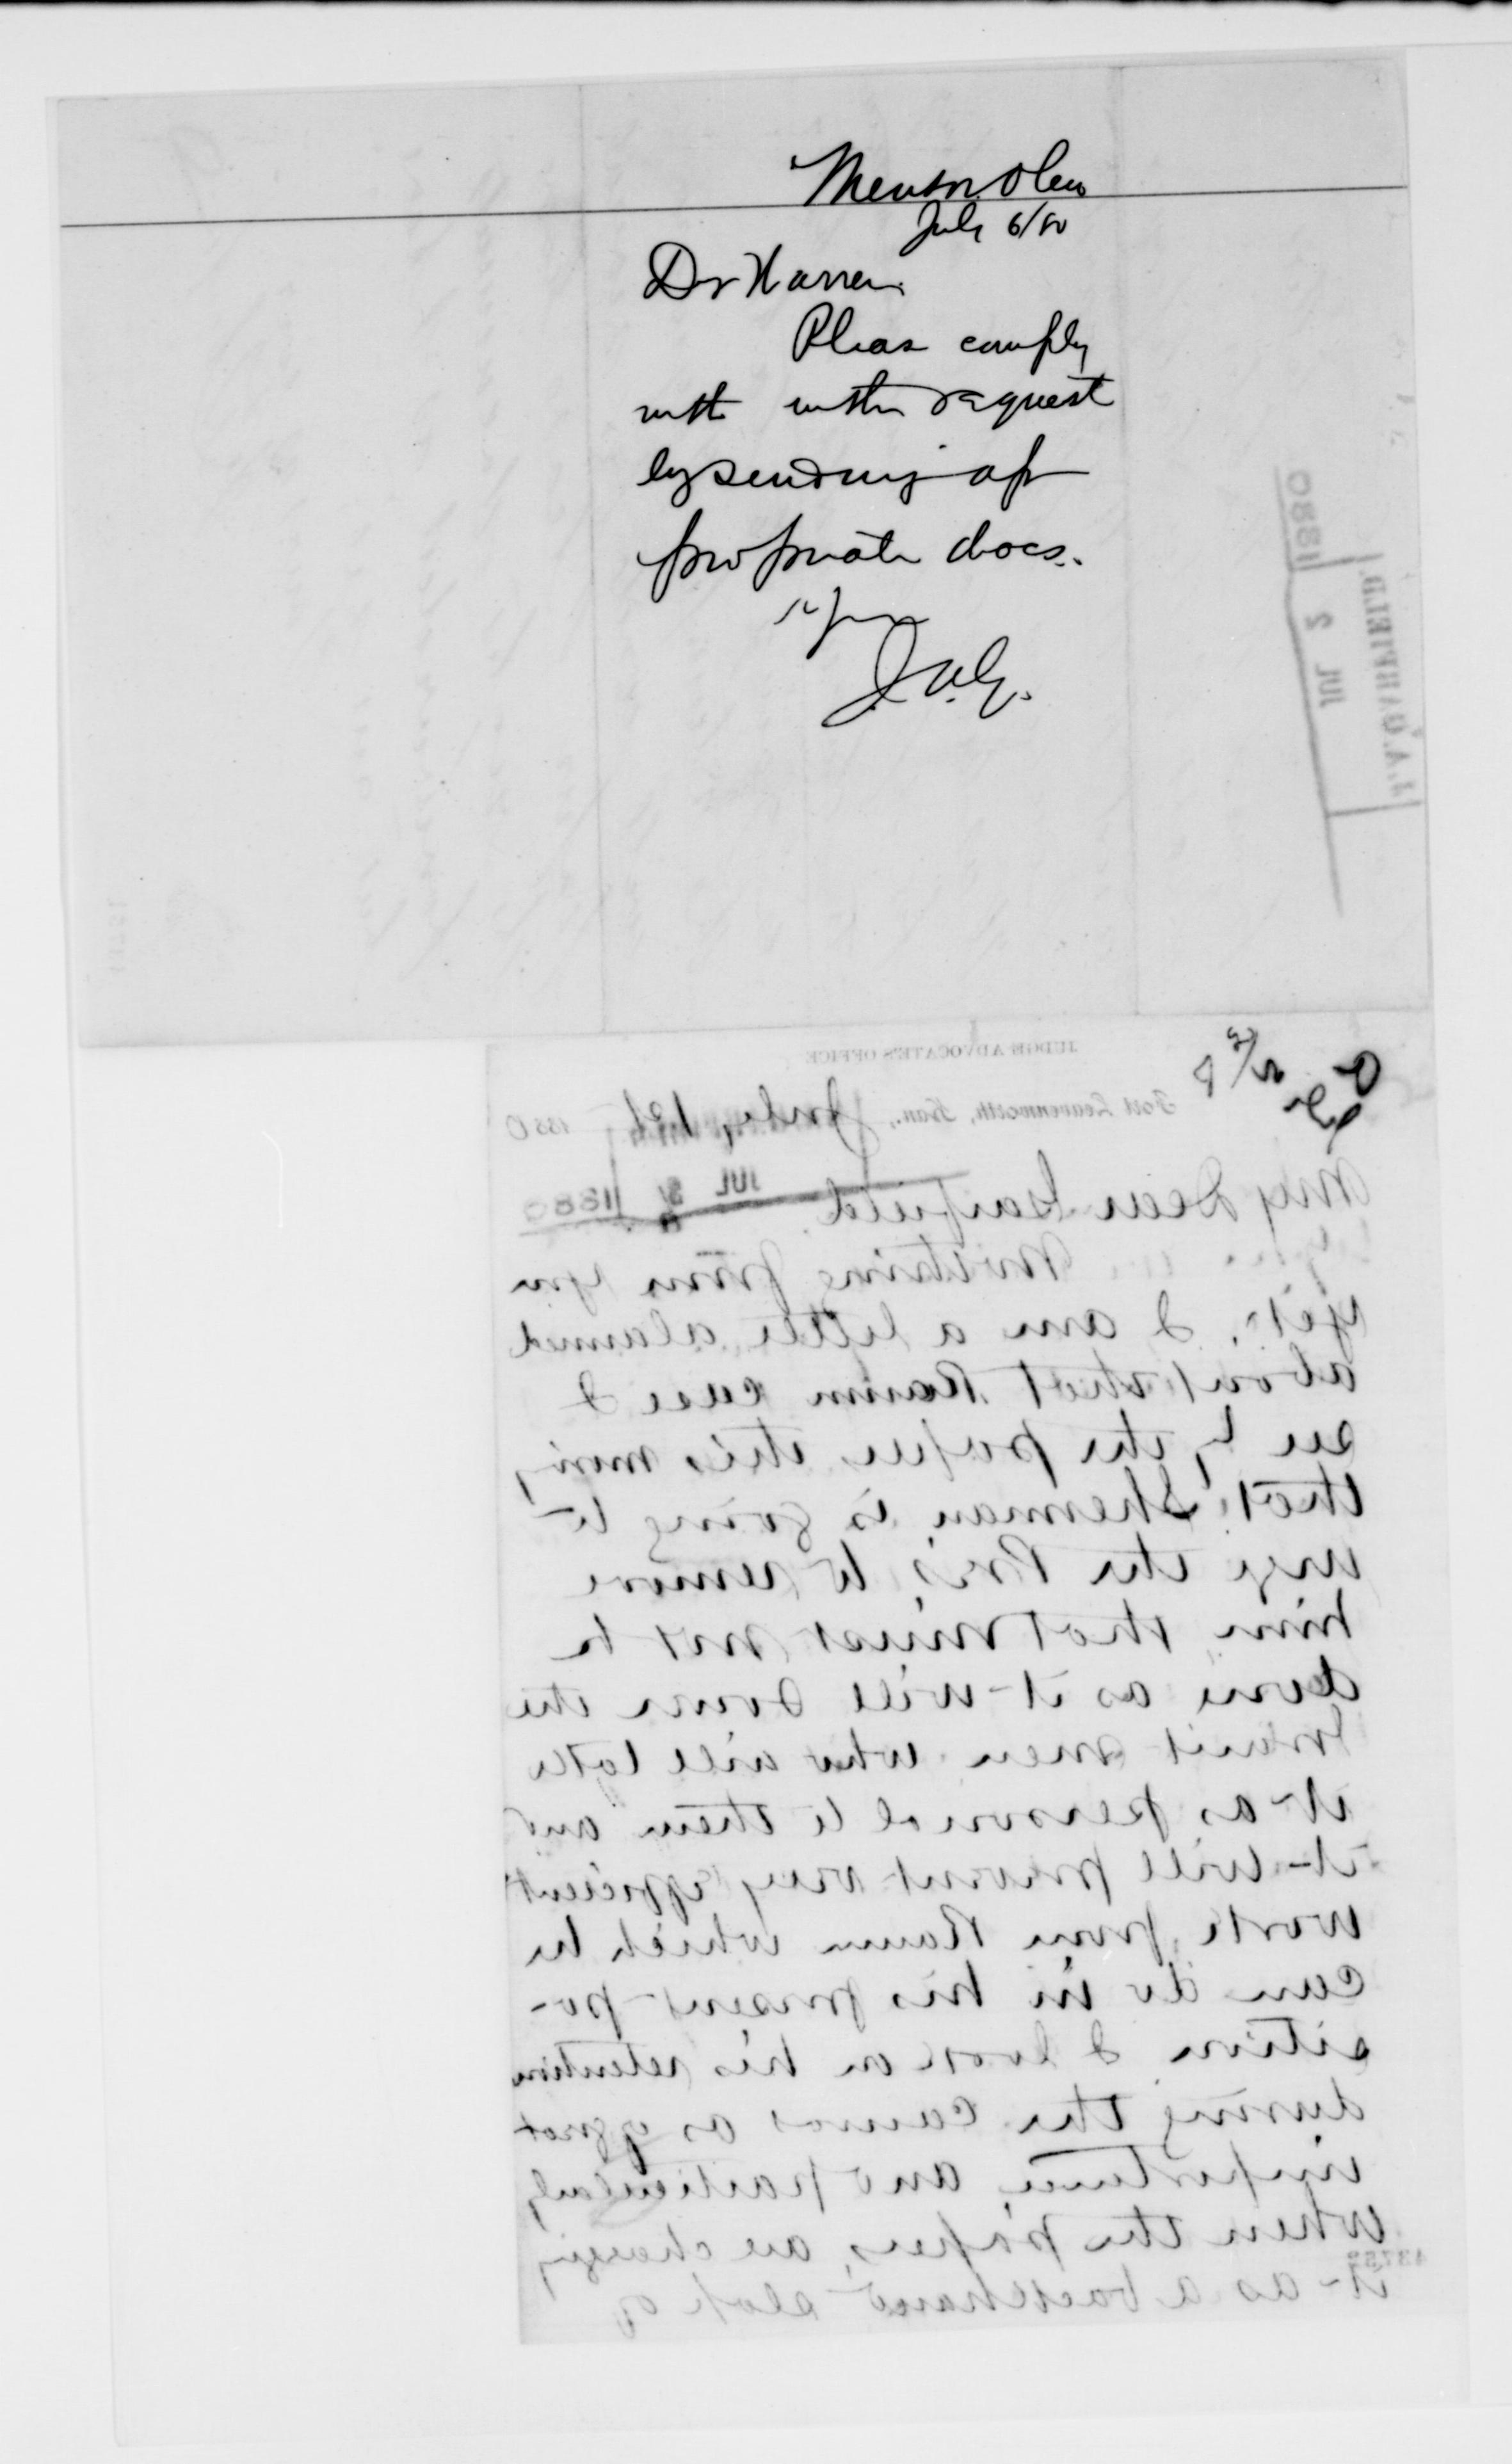 Mentor Ohio
July 6/80
Dr Warren
Please comply
with within request
by sending ap
propriate docs.
Yours
J.A.G.
1880
JUL 2
J. A. GARFIELD.
JUDGE ADVOCATE'S OFFICE
Fort Leavenworth, Kan., July 1st 1880
JUL 5 1880
My Dear Garfield
Nothing from you
yet. I am a little alarmed
about that Raum case I
see by the papers this morning
that Sherman is going to
urge the Pres. to remove
him that must not be
done as it will down the
Grant men who will take
it as personal to them and
it will prevent very efficient
work from Raum which he
can do in his present po-
sition I look on his retention
during the canvas as of great
importance, and particularly
when the papers are charging
it as a backhand slap of